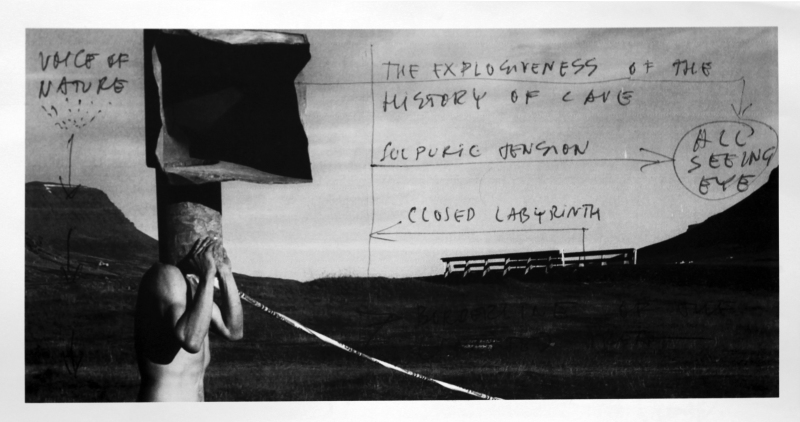 VOICE OF
NATURE
THE EXPLOSIVENESS OF THE
HISTORY OF CAVE
SULPURIC TENSION
ALL
SEEING
EYE
CLOSED LABYRINTH